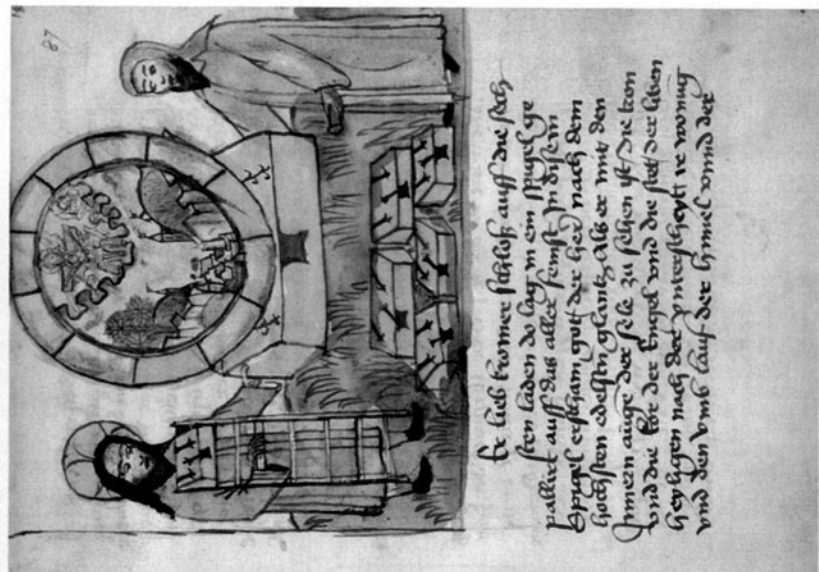 87
Er lieb kromer schloß auff die sech
sten laden do lag in ein spigel ge
palliert auff das aller feinst In disem
Spigel gott der her nach dem
hochsten edelsten glantz Als er mit den
Innern auge der sele zu sehen ist die kron
vnd die kor der Engel vnd die stet der lieben
heyligen nach der vnterscheyt ir wonung
vnd den vmb lauf der himel vnnd der